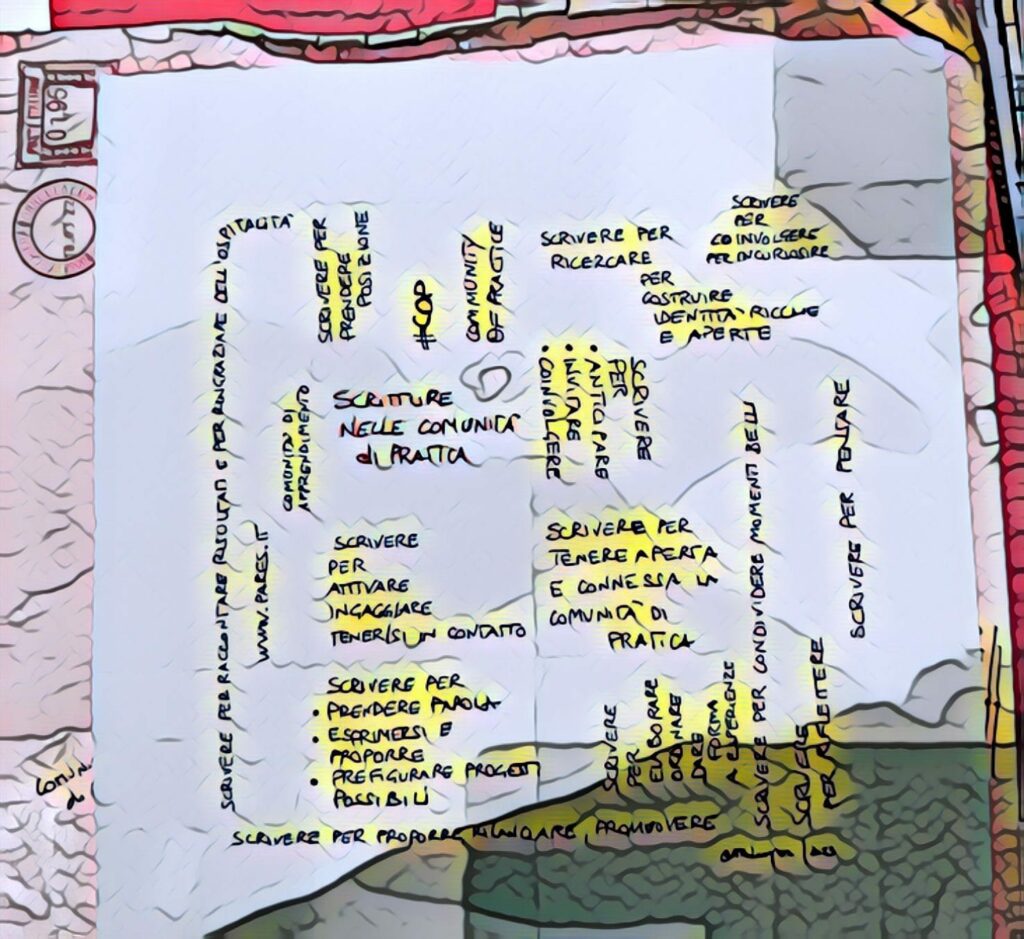 SCRIVERE PER RACCONTARE RISULTATI E PER RINGRAZIARE DELL'OSPITALITÀ
SCRIVERE PER
PRENDERE
POSIZIONE
#COP
COMMUNITY
OF PRACTICE
SCRIVERE PER
RICERCARE
SCRIVERE
PER
COINVOLGERE
PER INCURIOSIRE
PER
COSTRUIRE
IDENTITÀ RICCHE
E APERTE
COMUNITÀ DI
APPRENDIMENTO
SCRITTURE
NELLE COMUNITÀ
di PRATICA
SCRIVERE
PER
• ANTICIPARE
• INVITARE
• COINVOLGERE
WWW.PARES.IT
SCRIVERE
PER
ATTIVARE
INGAGGIARE
TENER(S)I IN CONTATTO
SCRIVERE PER
TENERE APERTA
E CONNESSA LA
COMUNITÀ DI
PRATICA
SCRIVERE PER CONDIVIDERE MOMENTI BELLI
SCRIVERE PER PENSARE
SCRIVERE PER
• PRENDERE PAROLA
• ESPRIMERSI E
PROPORRE
• PREFIGURARE PROGETTI
POSSIBILI
SCRIVERE
PER
ELABORARE
ORDINARE
DARE
FORMA
A ESPERIENZE
SCRIVERE
PER RIFLETTERE
SCRIVERE PER PROPORRE, RILANCIARE, PROMUOVERE